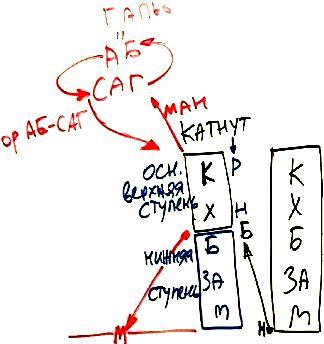 ГАЛЬГ
"
АБ
САГ
ор АБ-САГ
МАН
КАТНУТ
ОСН.
ВЕРХНЯЯ
СТУПЕНЬ
К
Х
Б
ЗА
М
Р
Н
Б
А
НИЖНЯЯ
СТУПЕНЬ
М
К
Х
Б
ЗА
М